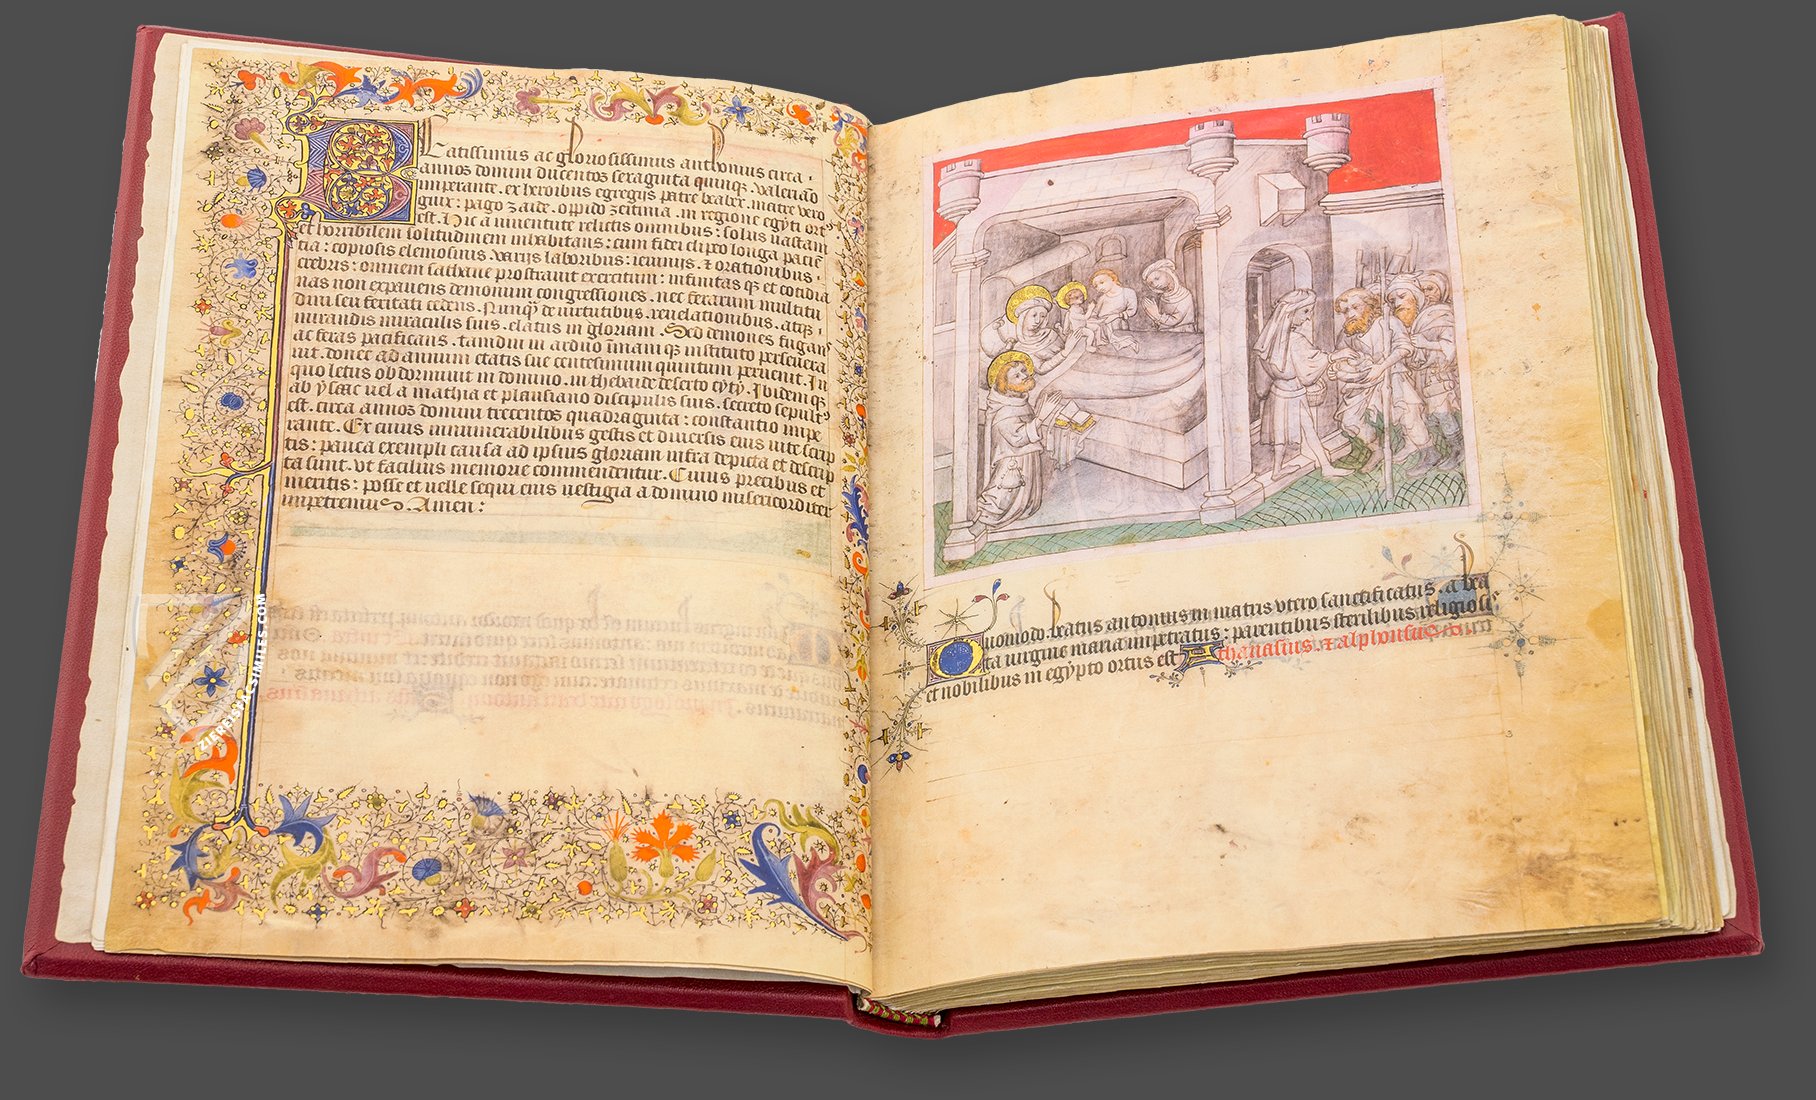 Beatissimus ac gloriosissimus anthonius circa ·
annos domini ducentos sexaginta quinqz . valeriano
imperante . ex heroibus egregijs patre beabex . matre vero
guix : pago zaide . oppido zeitinia . in regione egyti ort⁹
est . Hic a iuuentute relictis omnibus : solus uastam
et horribilem solitudinem inhabitans : cum fidei clipeo longa pacie
tia : copiosis elemosinis varijs laboribus : ieiunijs . et orationibus ·
crebris : omnem sathane prostrauit exercitum : infinitas qz et cotidia
nas non expauens demonum congressiones . nec ferarum multitu
dini seu feritati cedens . Nunqz de uirtutibus . reuelationibus . atqz ·
mirandis miraculis suis . elatus in gloriam . Sed demones fugans
ac feras pacificans . tamdiu in arduo unam qz instituto perseuera
uit . donec ad annum etatis sue centesimum quintum peruenit . In
quo letus obdormiuit in domino . in thebaide deserto egyty . Ibidem qz
ab ysaac uel a mathia et plausiano discipulis suis . secreto sepult⁹
est . circa annos domini trecentos quadraginta : constantio impe
rante . Ex cuius innumerabilibus gestis et diuersis eius uite scrip
tis : pauca exempli causa ad ipsius gloriam infra depicta et descrip
ta sunt . vt facilius memorie commendentur . Cuius precibus et
meritis : posse et uelle sequi eius uestigia a domino misericorditer
impetremus . Amen :
Quomodo . beatus antonius in matris vtero sanctificatus . a bea
ta uirgine maria impetratus : parentibus sterilibus religiosis
et nobilibus in egypto ortus est Athanasius . et alphonsus
ZIEREIS FACSIMILES.COM